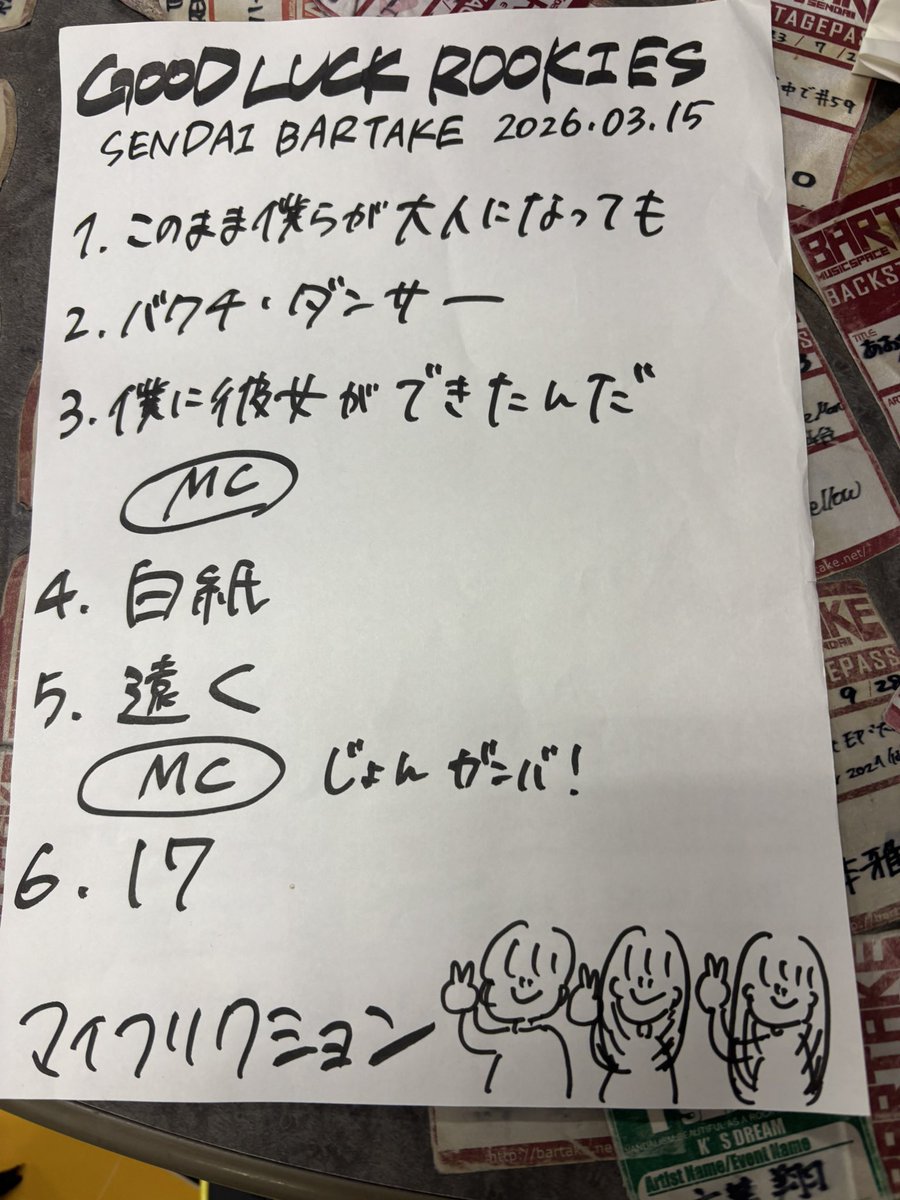 GOOD LUCK ROOKIES
SENDAI BARTAKE 2026.03.15
1. このまま僕らが大人になっても
2. バクチ・ダンサー
3. 僕に彼女ができたんだ
MC
4. 白紙
5. 遠く
MC じょん ガンバ!
6. 17
マイフリクション
SENDAI
TAGEPASS
中で#59
BART
MUSICSPACE
BACKS
TITLE
ellow
take.net/
TAGEPASS
9 / 28
http://bartake.ne
K'S DREAM
Artist Name/Event Name
翔